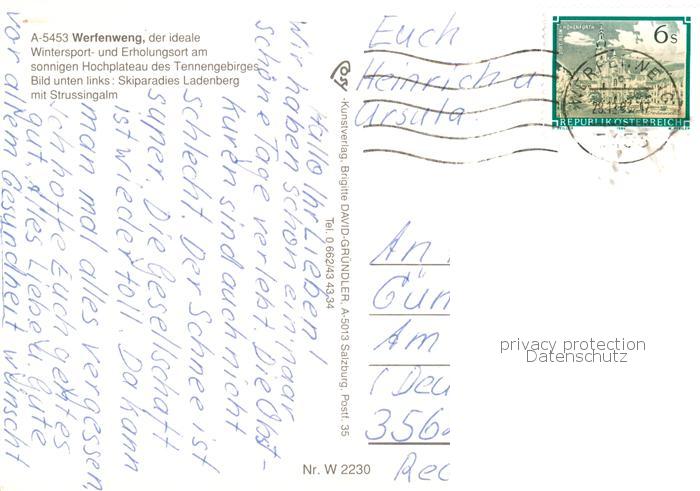 A-5453 Werfenweng, der ideale
Wintersport- und Erholungsort am
sonnigen Hochplateau des Tennengebirges
Bild unten links: Skiparadies Ladenberg
mit Strussingalm
Hallo Ihr Lieben!
Wir haben schon ein paar
schöne Tage verlebt. Die Obst-
kuren sind auch nicht
schlecht. Der Schnee ist
super. Die Gesellschaft
ist wieder toll. Da kann
man mal alles vergessen,
ich hoffe Euch geht es
gut. Alles Liebe u. Gute
vor allem Gesundheit wünscht
Euch
Heinrich u.
Ursula
-Kunstverlag, Brigitte DAVID-GRÜNDLER, A-5013 Salzburg, Postf. 35
Tel. 0 662/43 43 34
6s
REPUBLIK ÖSTERREICH
5453
An
Gün
Am
(Deu
356
Rec
privacy protection
Datenschutz
Nr. W 2230